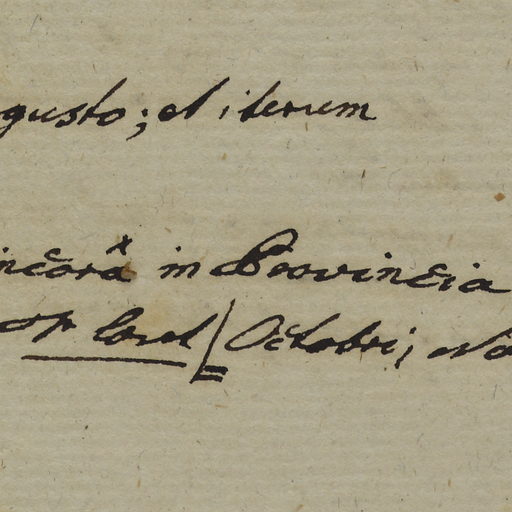 gusto; et iterum
incora x in Provincia
or Lovel / Octobri; No